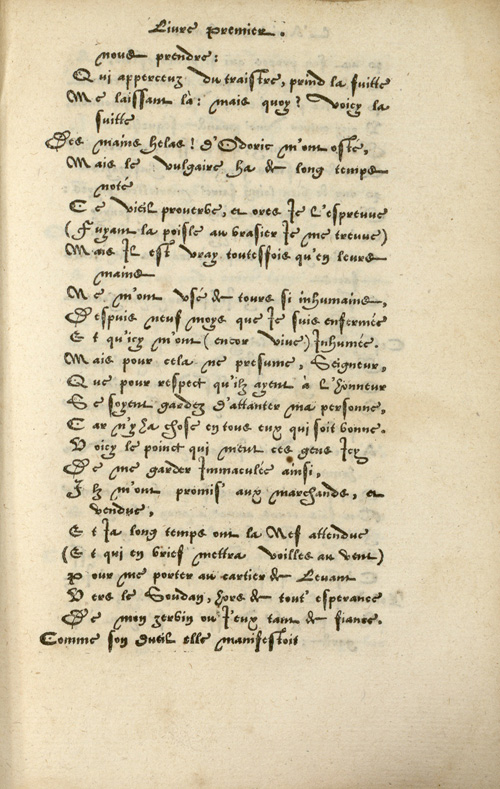 Livre premier.
nous prendre:
Qui apperceuz du traistre, prind la fuitte
Me laissant là: mais quoy? Voicy la
suitte
Des mains helas! d'Odoric m'ont osté,
Mais le vulgaire ha de long temps
noté
Ce vieil proverbe, et ores Je l'espreuve
(Fuyant la poisle au brasier Je me treuve)
Mais Il est vray toutesfois qu'en leurs
mains
Ne m'ont usé de tours si inhumains,
Despuis neuf moys que Je suis enfermée
Et qu'icy m'ont (encor vive) Inhumée.
Mais pour cela ne presume, Seigneur,
Que pour respect qu'ilz ayent à l'honneur
Se soyent gardez d'attanter ma personne,
Car n'y ha chose en tous eux qui soit bonne.
Voicy le poinct qui meut ces gens Icy
De me garder Immaculée ainsi,
Ilz m'ont promis aux marchands, et
vendue,
Et Ja long temps ont la Nef attendue
(Et qui en brief mettra voilles au vent)
Pour me porter au cartier de Levant
Vers le Soudan, hors de tout' esperance
De mon zerbin ou J'eux tant de fiance.
Comme son dueil elle manifestoit